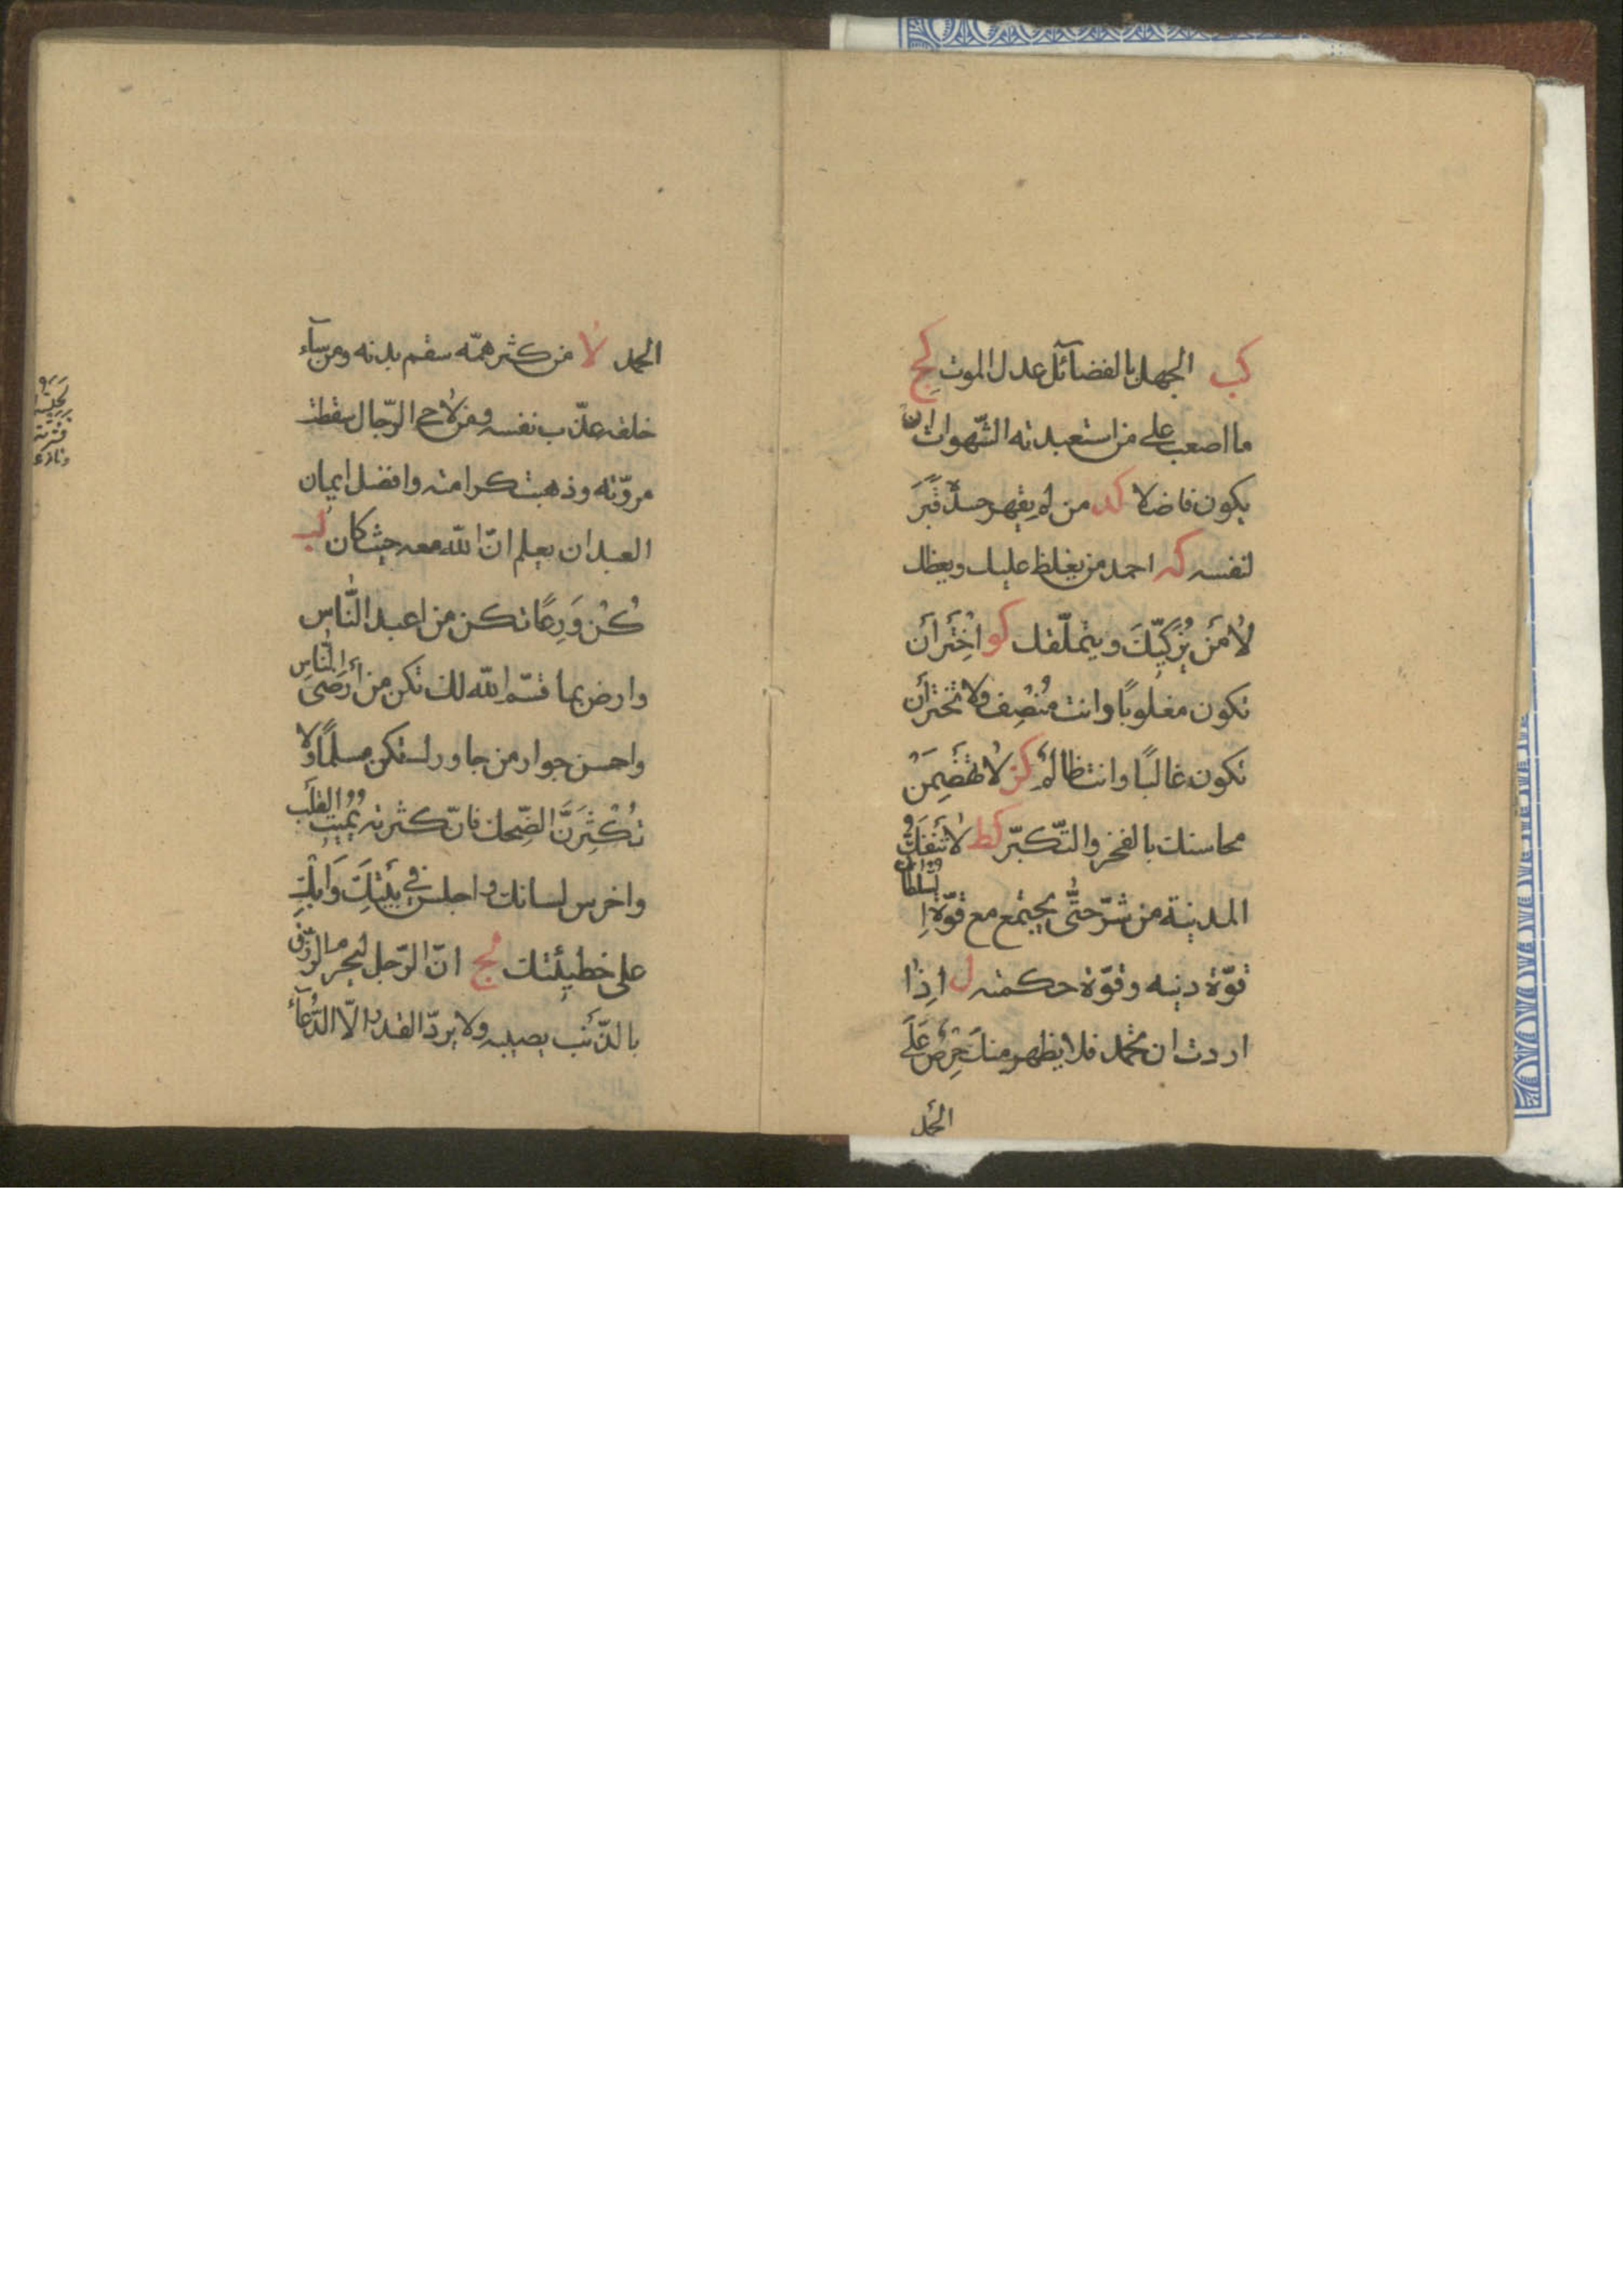 كب الجهل بالفضآئل عدل الموت كج
ما اصعب على من استعبدته الشّهوات ان
يكون فاضلا كد من لم يقهر حسده قبر
لنفسه كه احمد من يغلظ عليك ويعظك
لا مَن يُزكّيكَ ويتملّقك كو اختر أن
تكون مغلوبًا وانت مُنصِف ولا تختر أن
تكون غالبًا وانت ظالم كز لا تهضِمَن
محاسنك بالفخر والتّكبّر كط لا تنفكّ
المدينة من شرّ حتّى يجتمع مع قوّة السلطان
قوّة دينه وقوّة حكمته ل اِذا
اردت ان تحمد فلا يظهر منك حِرص عَلَى
الحمد
الحمد لا من كثر همّه سقم بدنه ومن سآء
خلقه عذّب نفسه ومن لاحى الرّجال سقطت
مروّته وذهبت كرامته وافضل ايمان
العبد ان يعلم انّ اللّه معه حيث كان لب
كُن وَرِعًا تكن من اعبد النّاسِ
وارض بما قسّم اللّه لك تكن من أرضَى النّاسِ
واحسن جوار من جاورك تكن مسلمًا ولا
تُكْثِرَنَّ الضّحك فانّ كثرته تُميتُ القلب
واخرس لسانك واجلس في بيتِكَ وَابكِ
على خطيئتك لج انّ الرّجل ليحرم الرّزق
بالذّنب يصيبه ولا يردّ القدر الّا الدُّعآء